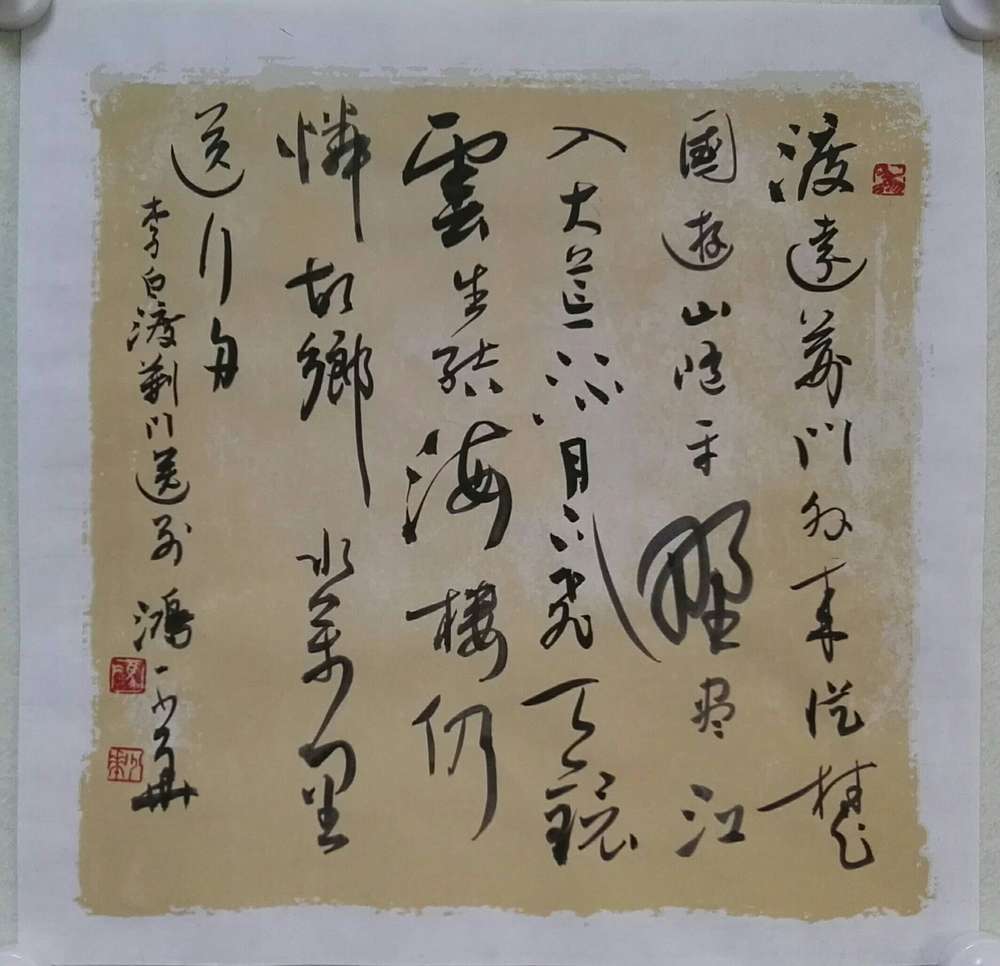 渡遠荊門外來從楚
國遊山隨平野盡江
入大荒流月下飛天鏡
雲生結海樓仍
憐故鄉水萬里
送行舟
李白渡荊門送別 鴻